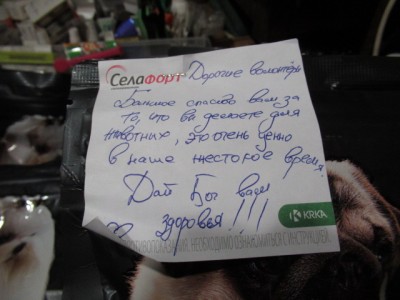 Селафорт Дорогие волонтёры
Большое спасибо вам за
то, что вы делаете для
животных, это очень ценно
в наше жестокое время,
Дай Бог вам
здоровья!!!
KRKA
ПРОТИВОПОКАЗАНИЯ. НЕОБХОДИМО ОЗНАКОМИТЬСЯ С ИНСТРУКЦИЕЙ.